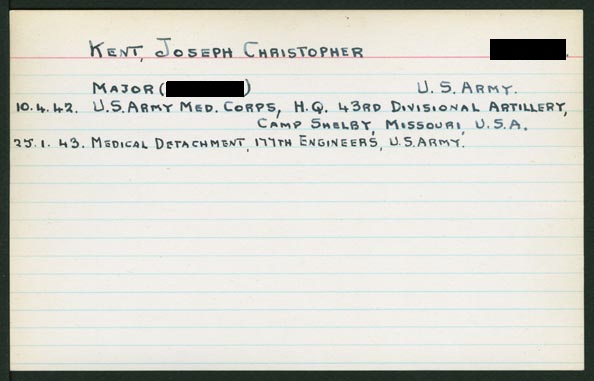 Kent, Joseph Christopher
Major ( ) U.S. Army.
10.4.42. U.S. Army Med. Corps, H.Q. 43rd Divisional Artillery,
Camp Shelby, Missouri, U.S.A.
25.1.43. Medical Detachment, 177th Engineers, U.S. Army.